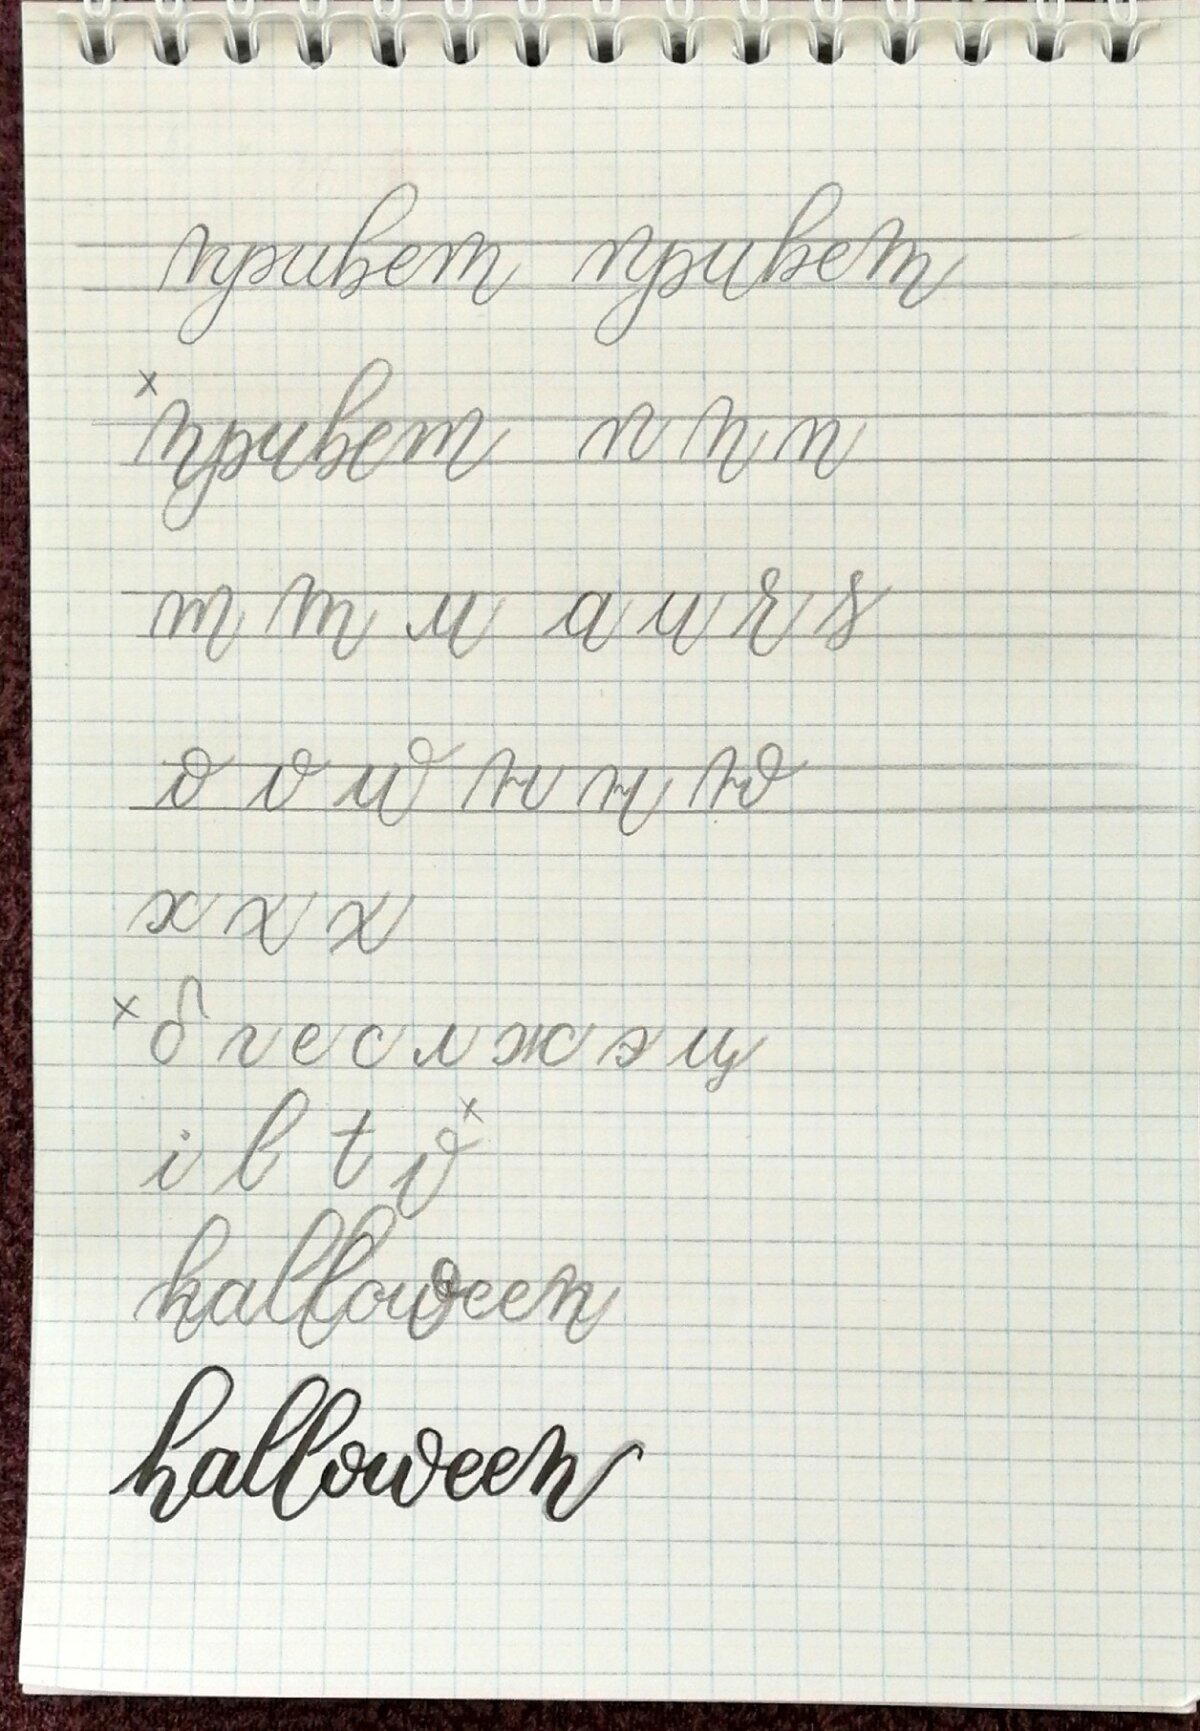 привет привет
х привет п п п
т т и а и я я
о о ю н н ю
х х х
х б г е с л ж э щ
i l t v х
halloween
halloween